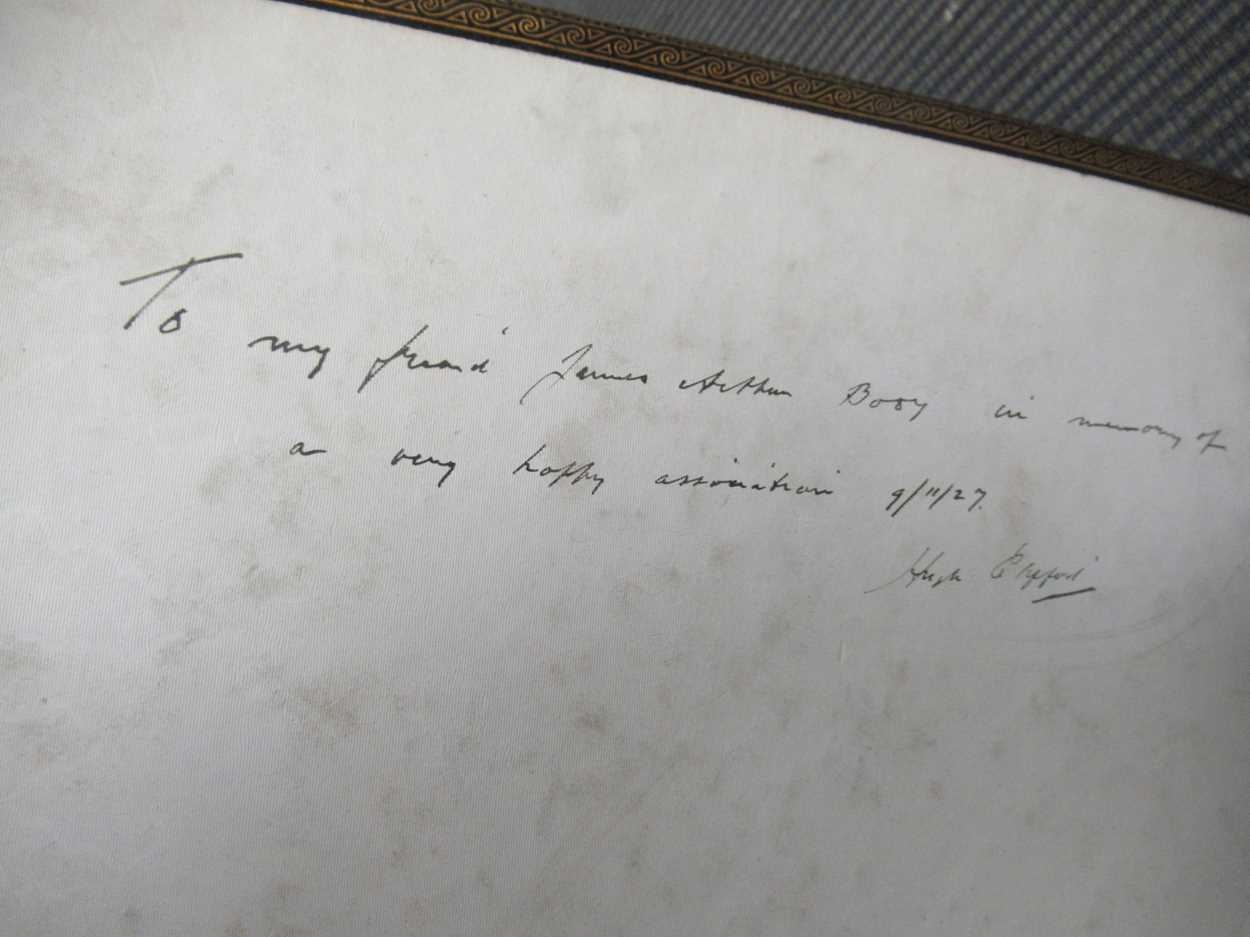 To my friend James Arthur Body in memory of
a very happy association 9/11/27.
Hugh Clifford